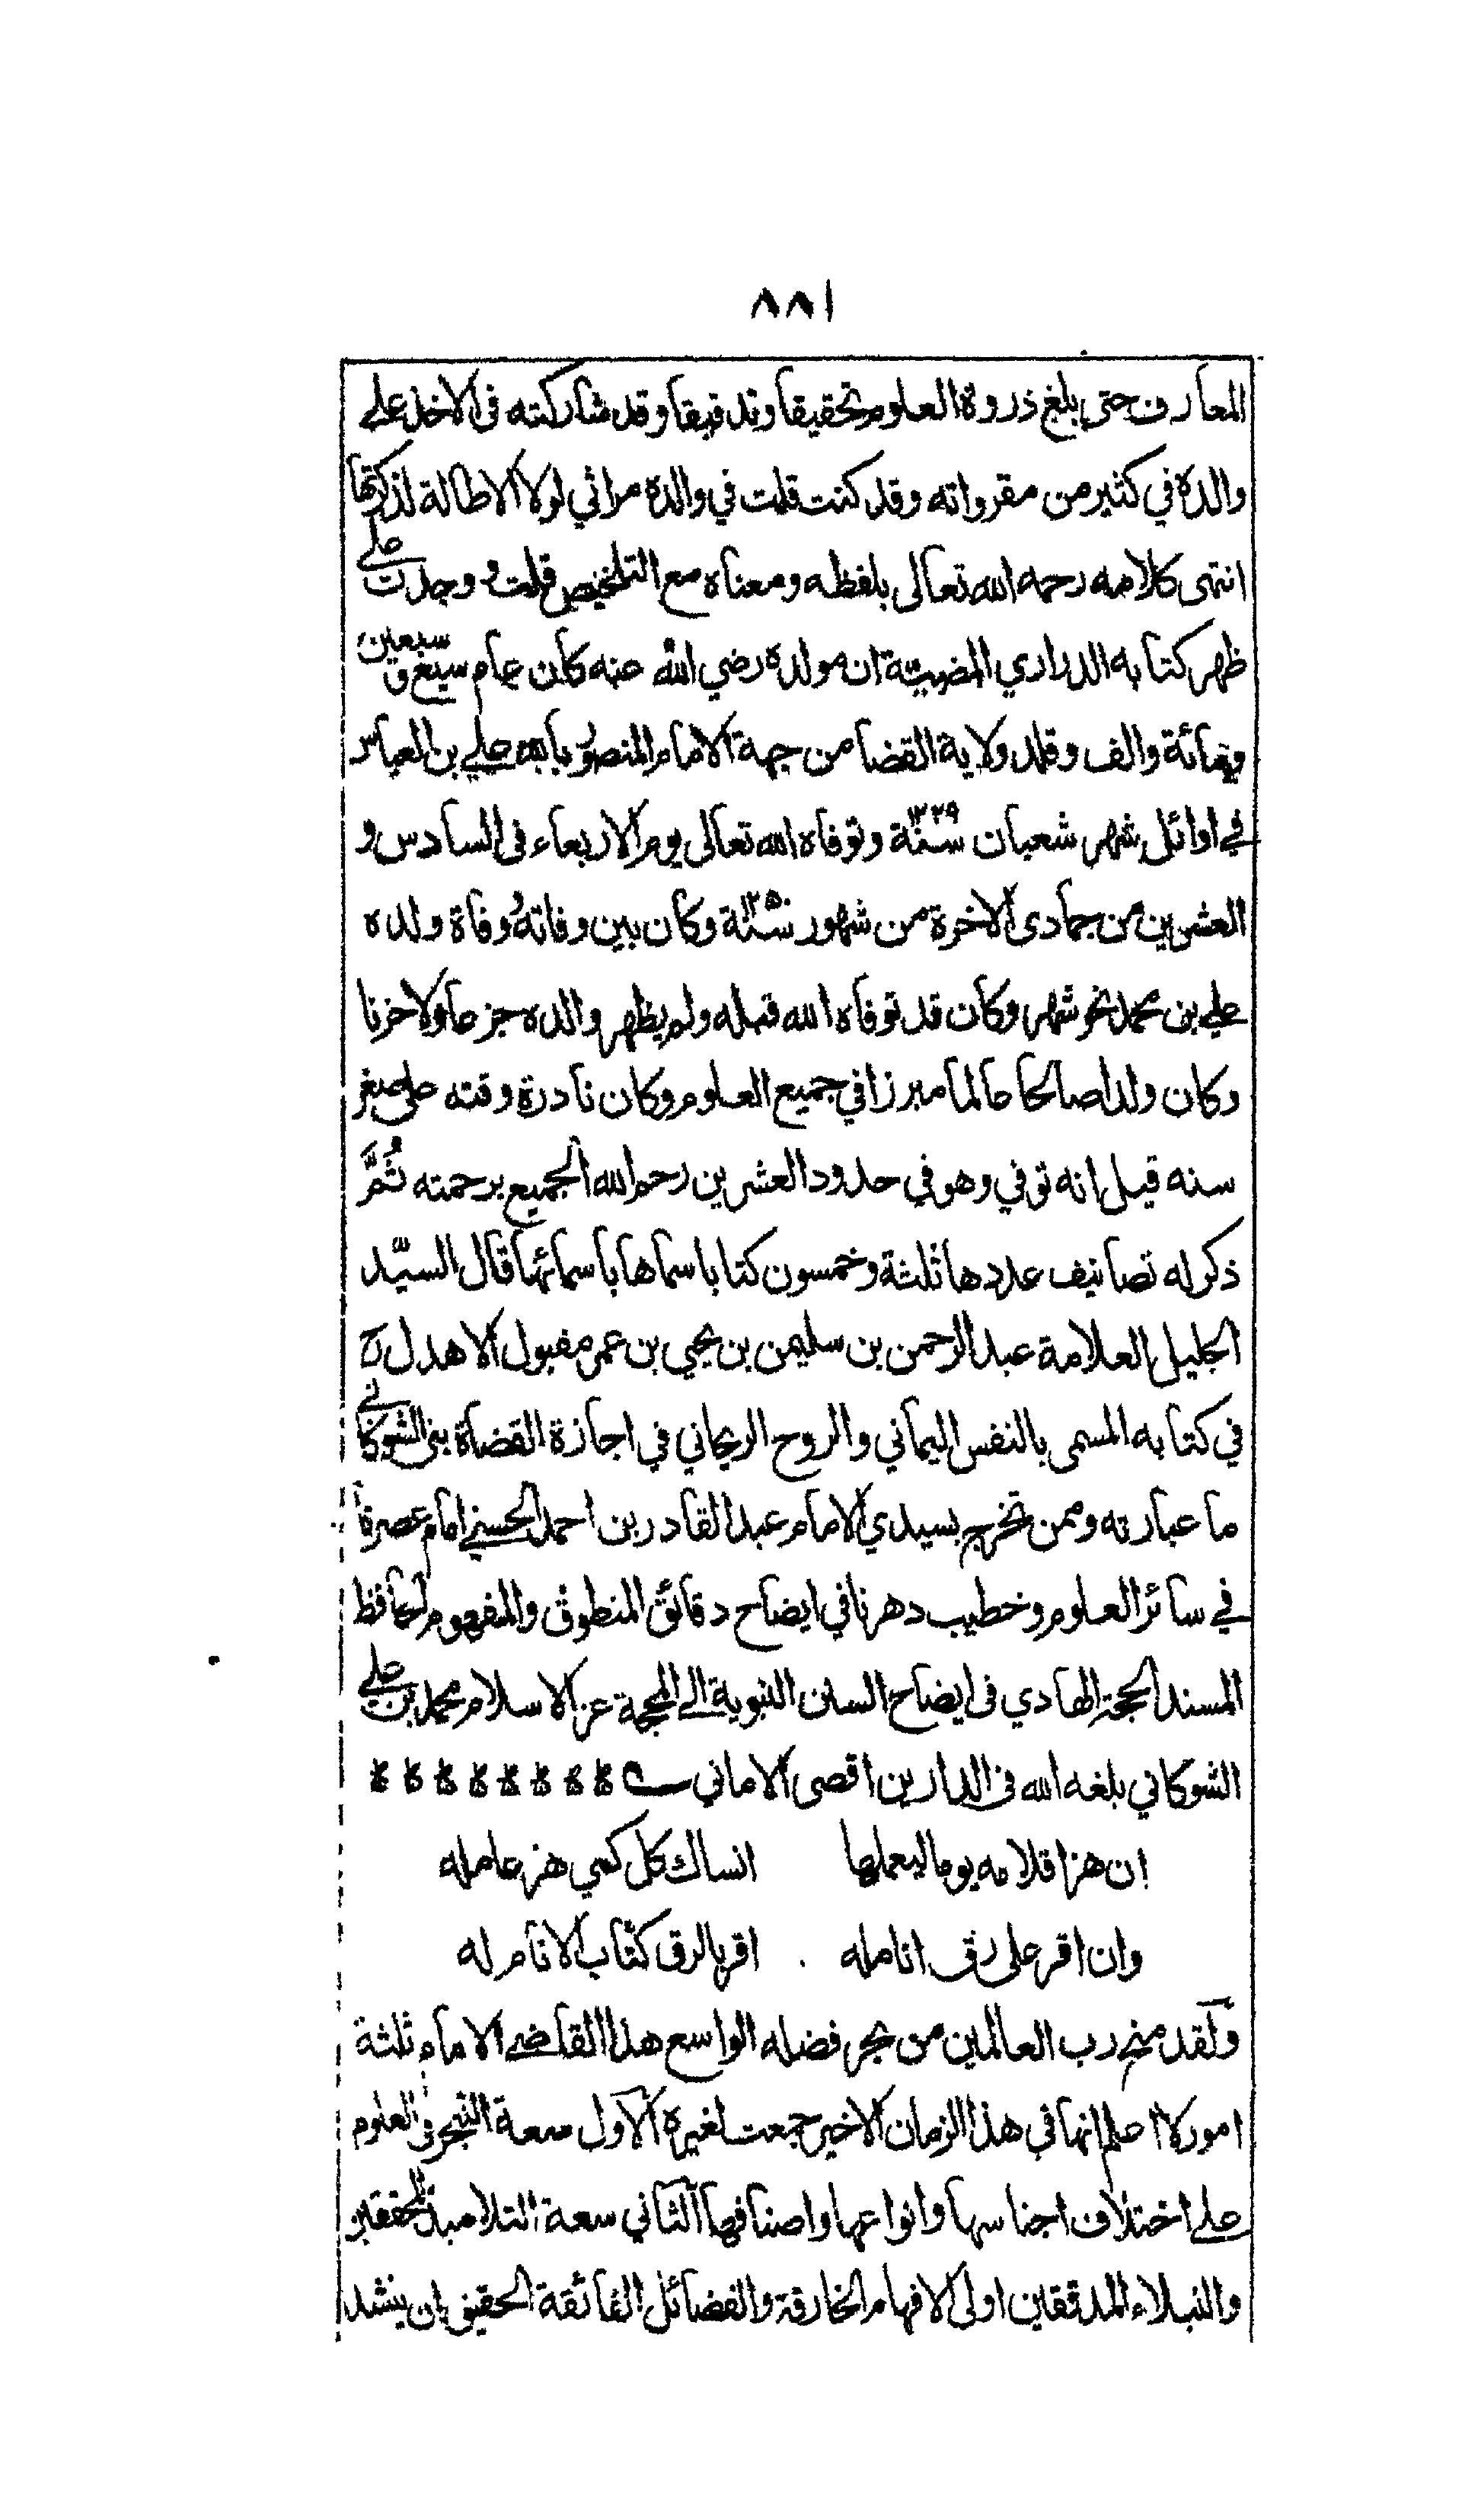 ٨٨١
المعارف حتى بلغ ذروة العلوم تحقيقا وتدقيقا وقد شاركته فى الاخذ على
والده في كثير من مقرواته وقد كنت قلت في والده مراثي لولا الاطالة لذكرتها
انتهى كلامه رحمه الله تعالى بلفظه ومعناه مع التلخيص قلت ووجدت على
ظهر كتابه الدراري المضيئة ان مولده رضي الله عنه كان عام سبع و سبعين
ومائة والف وقلد ولاية القضا من جهة الامام المنصور بالله علي بن العباس
في اوائل شهر شعبان سنة وتوفاه الله تعالى يوم الاربعاء فى السادس و
العشرين من جمادى الاخرة من شهور سنة وكان بين وفاته ووفاة ولده
علي بن محمد نحو شهر وكان قد توفاه الله قبله ولم يظهر والده جزعا ولا حزنا
وكان ولدا صالحا عالما مبرزا في جميع العلوم وكان نادرة وقته على صغر
سنه قيل انه توفي وهو في حدود العشرين رحم الله الجميع برحمته ثُمَّ
ذكر له تصانيف عددها ثلثة وخمسون كتابا سماها باسمائها قال السيّد
الجليل العلامة عبد الرحمن بن سليمن بن يحيى بن عمر مقبول الاهدل
في كتابه المسمى بالنفس اليماني والروح الريحاني في اجازة القضاة بني الشوكاني
ما عبارته وممن تخرج بسيدي الامام عبد القادر بن احمد الحسني امام عصرنا
في سائر العلوم وخطيب دهرنا في ايضاح دقائق المنطوق والمفهوم الحافظ
المسند الحجة الهادي فى ايضاح السنن النبوية الى المحجة عز الاسلام محمد بن علي
الشوكاني بلغه الله فى الدارين اقصى الاماني
ان هز اقلامه يوما ليعملها انساك كل كمي هز عامله
وان اقر على رق انامله اقر بالرق كتاب الانام له
ولقد منح رب العالمين من بحر فضله الواسع هذا القاضي الامام ثلثة
امور لا اعلم انها في هذا الزمان الاخير جمعت لغيره الاول سعة التبحر فى العلوم
على اختلاف اجناسها وانواعها واصنافها الثاني سعة التلاميذ المحققين
والنبلاء المدققين اولى الافهام الخارقة والفضائل الفائقة الحقيق بان ينشد